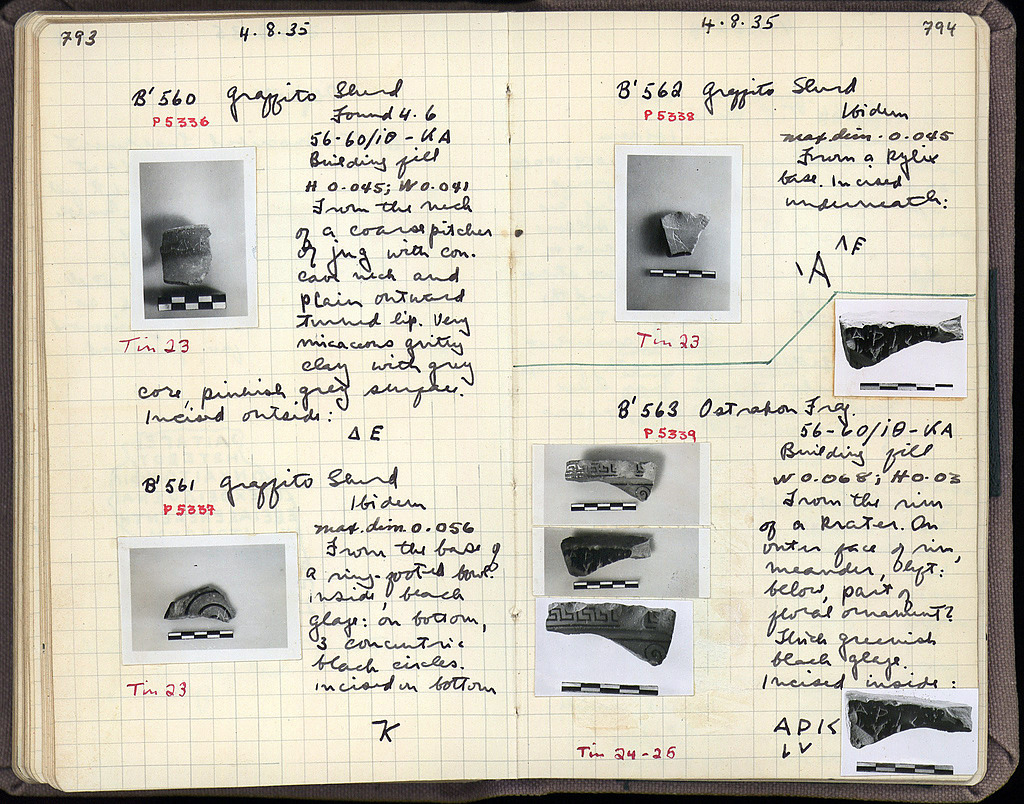 793
4.8.35
B'560 Graffito Sherd
P 5336
Found 4.6
56-60/ΙΘ-ΚΑ
Building fill
H 0.045; W 0.041
From the neck
of a coarse pitcher
or jug with con-
cave neck and
plain outward
turned lip. Very
micaceous gritty
clay with grey
core, pinkish grey surface.
Incised outside:
Δ Ε
Tin 23
B'561 Graffito Sherd
P 5337
Ibidem
max. dim. 0.056
From the base of
a ring-footed bowl.
Inside, black
glaze: on bottom,
3 concentric
black circles.
Incised on bottom
K
Tin 23
4.8.35
794
B'562 Graffito Sherd
P 5338
Ibidem
max. dim. 0.045
From a kylix
base. Incised
underneath:
Tin 23
B'563 Ostrakon Frag.
P 5339
56-60/ΙΘ-ΚΑ
Building fill
W 0.068; H 0.03
From the rim
of a krater. On
outer face of rim,
meander, left:
below, part of
floral ornament?
Thick greenish
black glaze.
Incised inside:
Tin 24-25